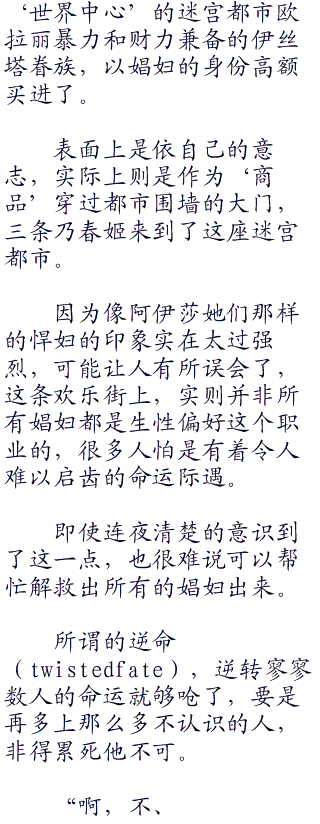 ‘世界中心’的迷宫都市欧
拉丽暴力和财力兼备的伊丝
塔眷族，以娼妇的身份高额
买进了。
表面上是依自己的意
志，实际上则是作为‘商
品’穿过都市围墙的大门，
三条乃春姬来到了这座迷宫
都市。
因为像阿伊莎她们那样
的悍妇的印象实在太过强
烈，可能让人有所误会了，
这条欢乐街上，实则并非所
有娼妇都是生性偏好这个职
业的，很多人怕是有着令人
难以启齿的命运际遇。
即使连夜清楚的意识到
了这一点，也很难说可以帮
忙解救出所有的娼妇出来。
所谓的逆命
（twistedfate），逆转寥寥
数人的命运就够呛了，要是
再多上那么多不认识的人，
非得累死他不可。
“啊，不、